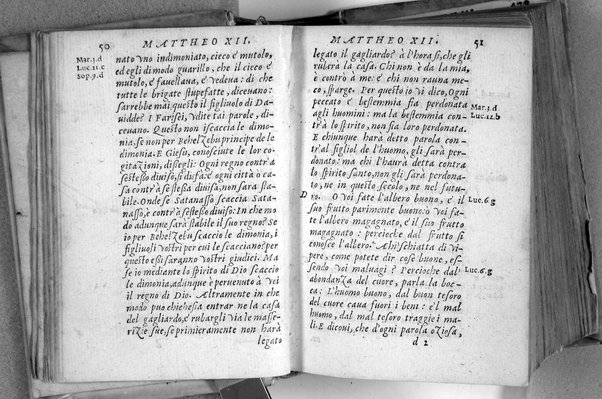 50
MATTHEO XII.
Mar.3.d
Luc.11.c
Sop.9.d
nato vno indimoniato, cieco & mutolo,
ed egli di modo guarillo, che il cieco &
mutolo, & fauellaua, & vedeua: di che
tutte le brigate stupefatte, diceuano:
sarrebbe mai questo il figliuolo di Da-
uidde? I Farisei, vdite tai parole, di-
ceuano. Questo non iscaccia le dimo-
nia, se non per Behelzebu principe de le
dimonia. E Giesu, conosciute le lor co-
gitazioni, disse gli: Ogni regno contr'a
se stesso diuiso, si disfa: & ogni città ò ca-
sa contr'à se stessa diuisa, non sarà sta-
bile. Onde se Satanasso scaccia Satta-
nasso, è contr'à se stesso diuiso: In che mo
do adunque sarà stabile il suo regno? Se
io per Behelzebu scaccio le dimonia, i
figliuoli vostri per cui le scacciano? per
questo essi saranno vostri giudici. Ma
se io mediante lo spirito di Dio scaccio
le dimonia, adunque è peruenuto à voi
il regno di Dio. Altramente in che
modo puo chichesia entrar ne la casa
del gagliardo, & rubargli via le masse-
rizie sue, se primieramente non harà
legato
MATTHEO XII.
51
legato il gagliardo? & à l'hora si, che gli
ruberà la casa. Chi non è da la mia,
è contr'à me: & chi non rauna me-
co, sparge. Per questo io vi dico, Ogni
peccato & bestemmia sia perdonata
agli huomini: ma la bestemmia con-
tr'à lo spirito, non sia loro perdonata.
E chiunque harà detto parola con-
tr'al figliol de l'huomo, gli sarà per-
donato: ma chi l'haurà detta contra
lo spirito santo, non gli sarà perdona-
to, ne in questo secolo, ne nel futu-
ro. O voi fate l'albero buono, & il
suo frutto parimente buono: ò voi fa-
te l'albero magagnato, & il suo frutto
magagnato: percioche dal frutto si
conosce l'albero. Ahi schiatta di vi-
pare, come potete dir cose buone, es-
sendo voi maluagi? Percioche dal'
abondanza del cuore, parla la boc-
ca: L'huomo buono, dal buon tesoro
del cuore caua fuori i beni: & 'l mal
huomo, dal mal tesoro traggie i ma-
li. E dicoui, che d'ogni parola oziosa,
d 2
Mar.3.d
Luc.12.b
D
Luc.6.g
Luc.6.g